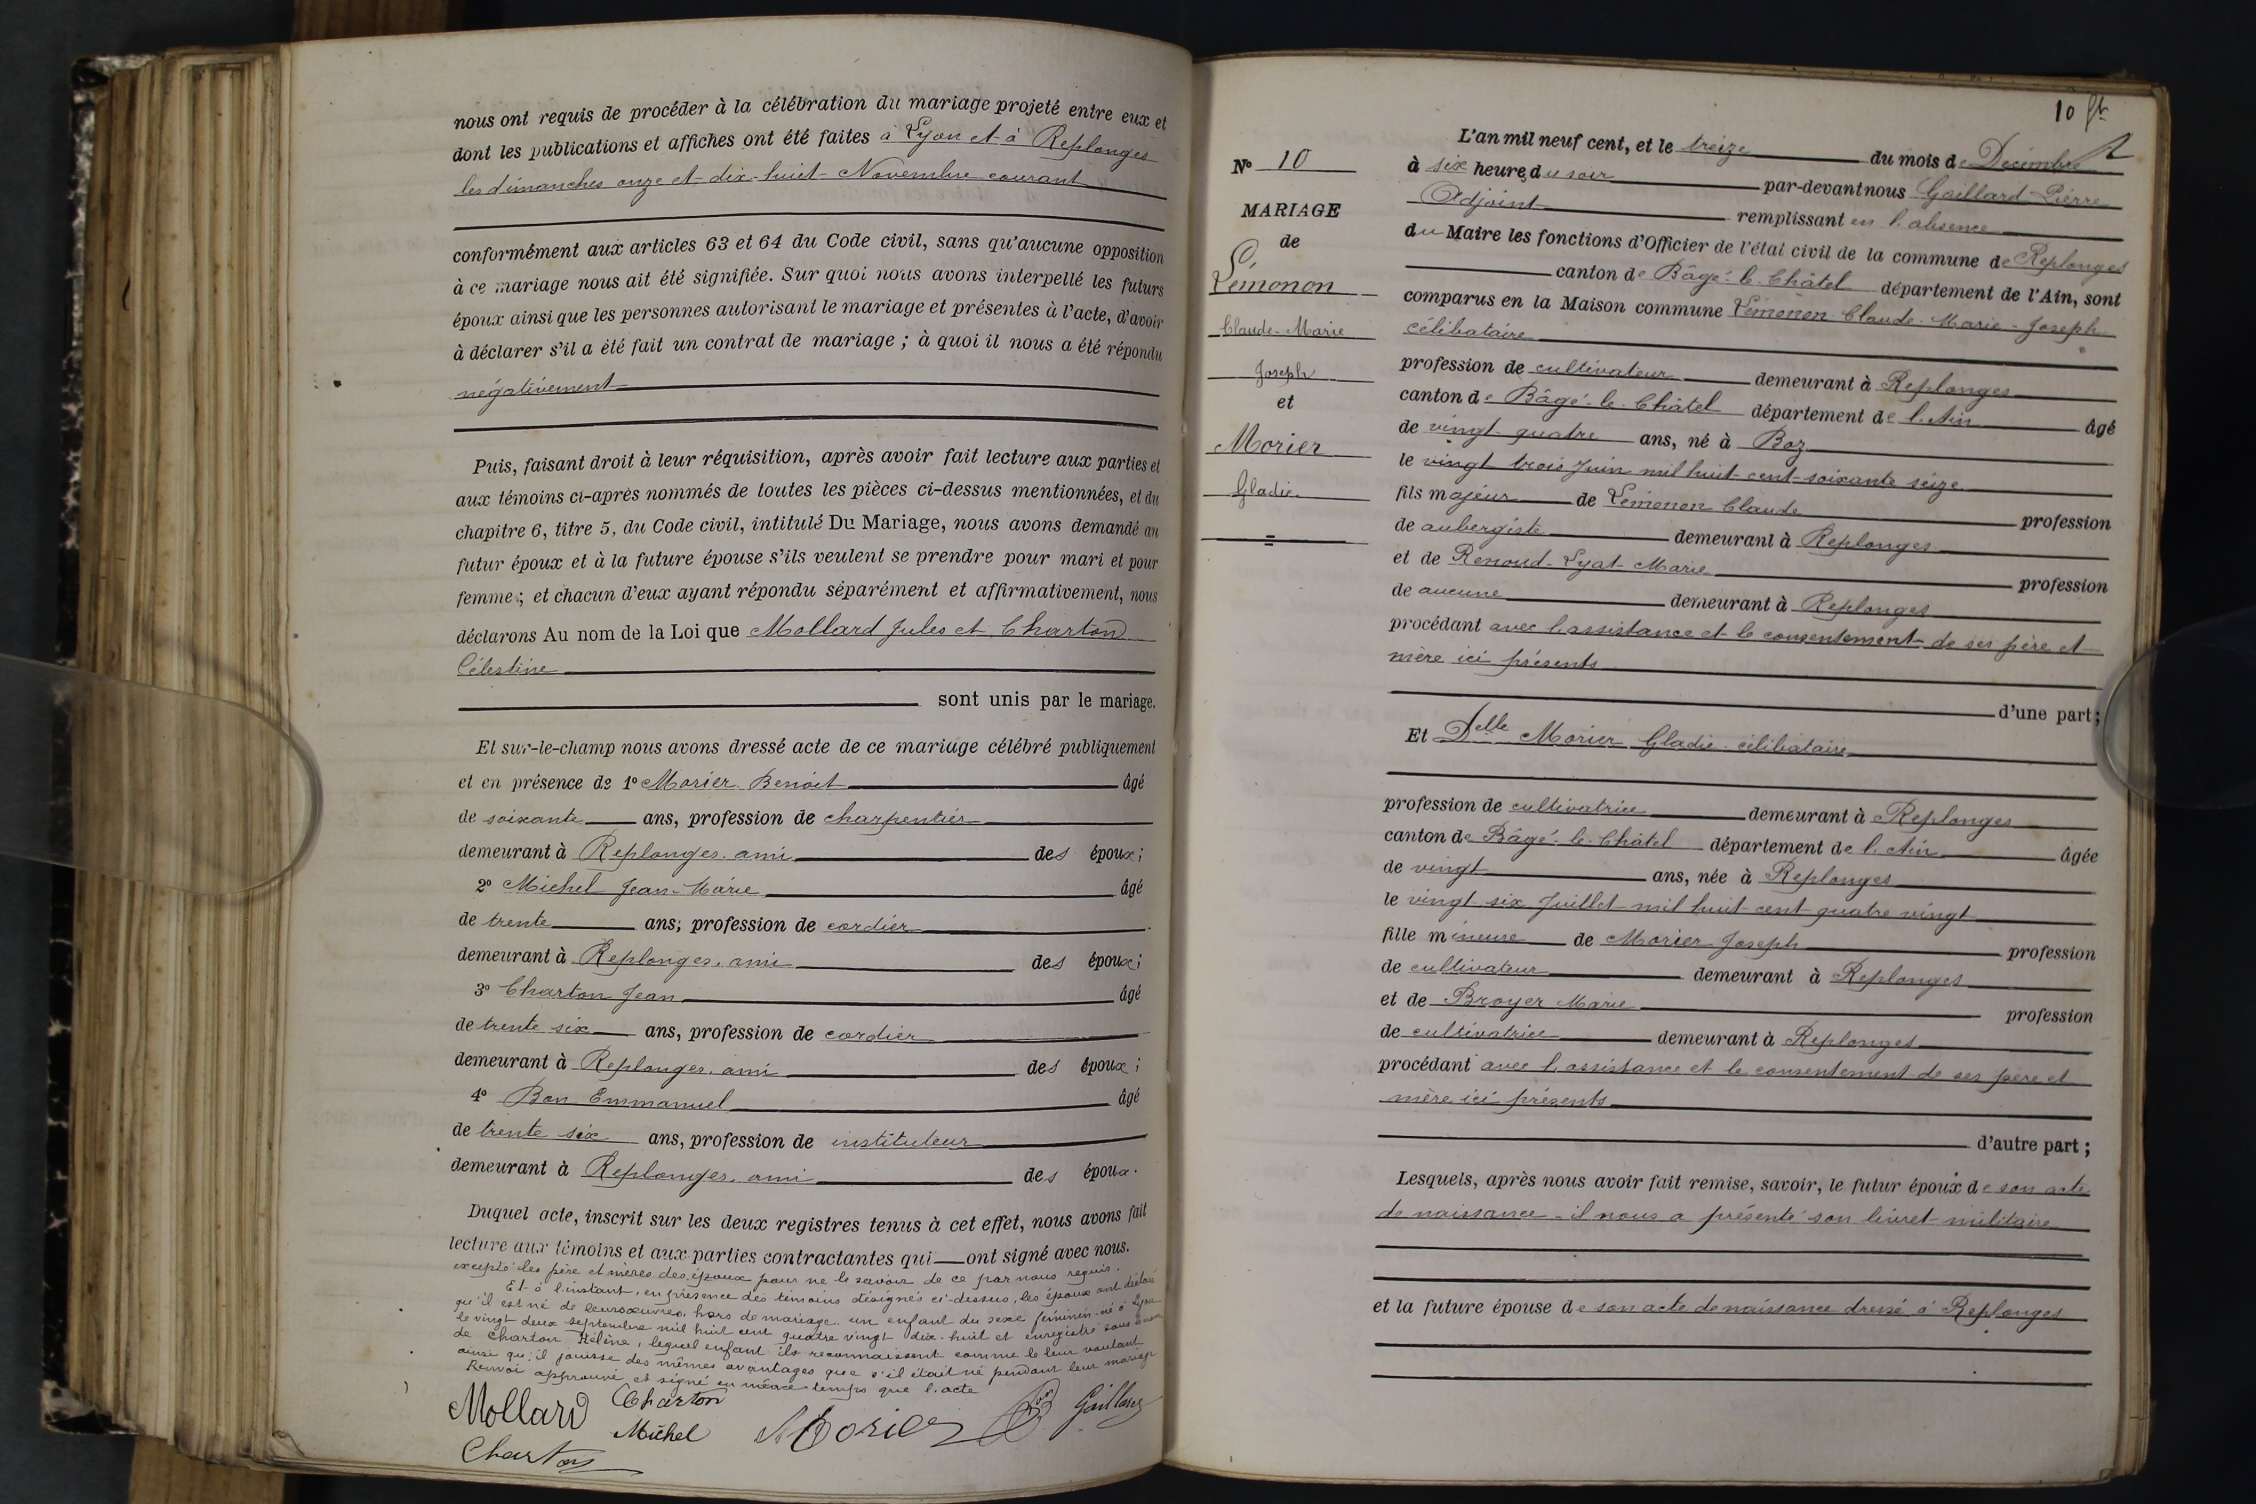 nous ont requis de procéder à la célébration du mariage projeté entre eux et
dont les publications et affiches ont été faites à Lyon et à Replonges
les dimanches onze et dix-huit Novembre courant
conformément aux articles 63 et 64 du Code civil, sans qu'aucune opposition
à ce mariage nous ait été signifiée. Sur quoi nous avons interpellé les futurs
époux ainsi que les personnes autorisant le mariage et présentes à l'acte, d'avoir
à déclarer s'il a été fait un contrat de mariage ; à quoi il nous a été répondu
négativement
Puis, faisant droit à leur réquisition, après avoir fait lecture aux parties et
aux témoins ci-après nommés de toutes les pièces ci-dessus mentionnées, et du
chapitre 6, titre 5, du Code civil, intitulé Du Mariage, nous avons demandé au
futur époux et à la future épouse s'ils veulent se prendre pour mari et pour
femme ; et chacun d'eux ayant répondu séparément et affirmativement, nous
déclarons Au nom de la Loi que Mollard Jules et Charton
Célestine
sont unis par le mariage.
Et sur-le-champ nous avons dressé acte de ce mariage célébré publiquement
et en présence de 1° Morier Benoit âgé
de soixante ans, profession de charpentier
demeurant à Replonges, ami des époux ;
2° Michel Jean-Marie âgé
de trente ans, profession de cordier
demeurant à Replonges, ami des époux ;
3° Charton Jean âgé
de trente six ans, profession de cordier
demeurant à Replonges, ami des époux ;
4° Bon Emmanuel âgé
de trente six ans, profession de instituteur
demeurant à Replonges, ami des époux.
Duquel acte, inscrit sur les deux registres tenus à cet effet, nous avons fait
lecture aux témoins et aux parties contractantes qui ont signé avec nous.
excepté les père et mères des époux pour ne le savoir de ce par nous requis.
Et à l'instant, en présence des témoins désignés ci-dessus, les époux ont déclaré
qu'il est né de leurs œuvres, hors de mariage, un enfant du sexe féminin né à Lyon
le vingt deux septembre mil huit cent quatre vingt dix-huit et enregistré sous le nom
de Charton Hélène, lequel enfant ils reconnaissent comme le leur voulant
ainsi qu'il jouisse des mêmes avantages que s'il était né pendant leur mariage
Renvoi approuvé et signé en même temps que l'acte
Mollard Charton Gaillard
Michel Morier
Charton
10
L'an mil neuf cent, et le treize du mois de Décembre
à six heures du soir par-devant nous Gaillard Pierre
Adjoint remplissant en l'absence
du Maire les fonctions d'Officier de l'état civil de la commune de Replonges
canton de Bâgé-le-Châtel département de l'Ain, sont
comparus en la Maison commune Lémonon Claude-Marie-Joseph
célibataire
profession de cultivateur demeurant à Replonges
canton de Bâgé-le-Châtel département de l'Ain âgé
de vingt-quatre ans, né à Boz
le vingt trois Juin mil huit cent soixante seize
fils majeur de Lémonon Claude profession
de aubergiste demeurant à Replonges
et de Renoud-Lyat Marie profession
de aucune demeurant à Replonges
procédant avec l'assistance et le consentement de ses père et
mère ici présents
d'une part ;
Et Delle Morier Gladie célibataire
profession de cultivatrice demeurant à Replonges
canton de Bâgé-le-Châtel département de l'Ain âgée
de vingt ans, née à Replonges
le vingt six Juillet mil huit cent quatre vingt
fille mineure de Morier Joseph profession
de cultivateur demeurant à Replonges
et de Broyer Marie profession
de cultivatrice demeurant à Replonges
procédant avec l'assistance et le consentement de ses père et
mère ici présents
d'autre part ;
Lesquels, après nous avoir fait remise, savoir, le futur époux de son acte
de naissance - il nous a présenté son livret militaire
et la future épouse de son acte de naissance dressé à Replonges
N° 10
MARIAGE
de
Lémonon
Claude-Marie
Joseph
et
Morier
Gladie